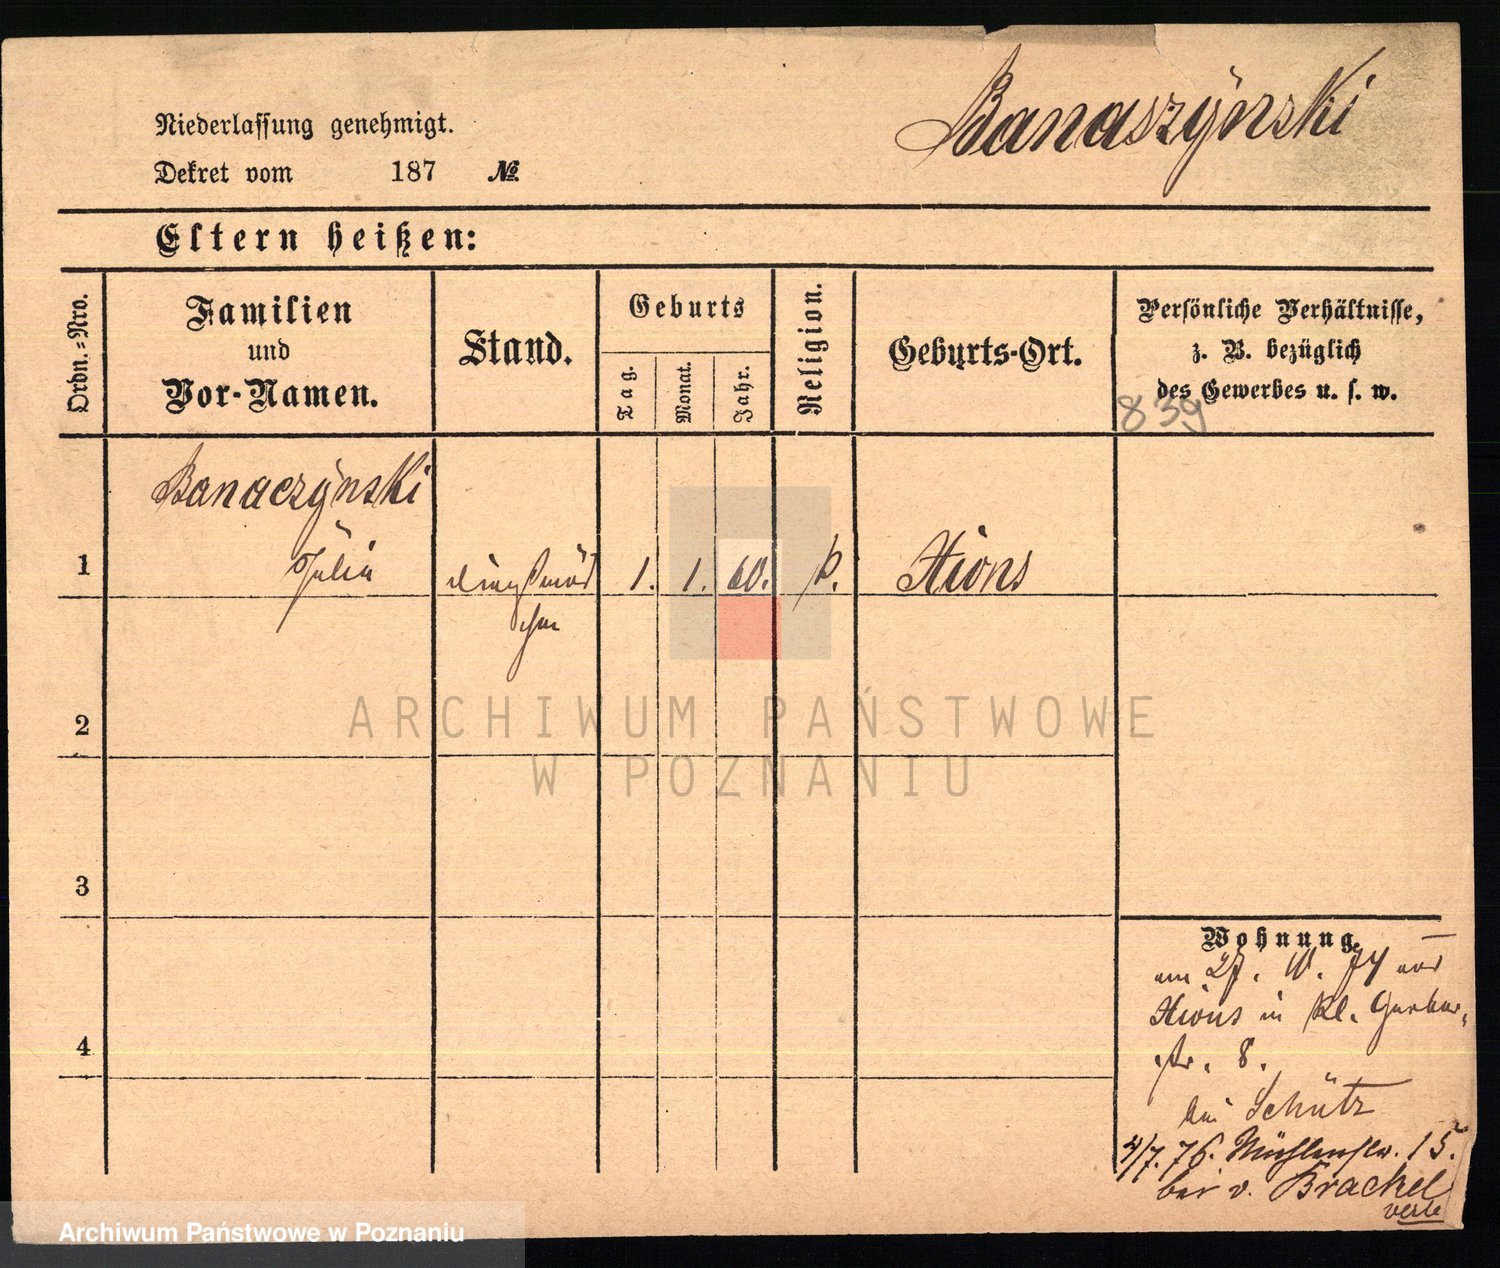 Banaszÿnski
Niederlassung genehmigt.
Dekret vom 187 №.
Eltern heißen:
Ordn.-Nro.
Familien
und
Vor-Namen.
Stand.
Geburts
Tag.
Monat.
Jahr.
Religion.
Geburts-Ort.
Persönliche Verhältnisse,
z. B. bezüglich
des Gewerbes u. s. w.
839
Banaczÿnski
1 Julia 1. 1. 60. Xions
2
3
4
Wohnung.
am 27. 10. 74 aus
Xions in Kl. Gerber-
str. 8.
bei Schütz
4/7. 76. Mühlenstr. 15.
bei v. Brackel
ARCHIWUM PAŃSTWOWE
W POZNANIU
Archiwum Państwowe w Poznaniu